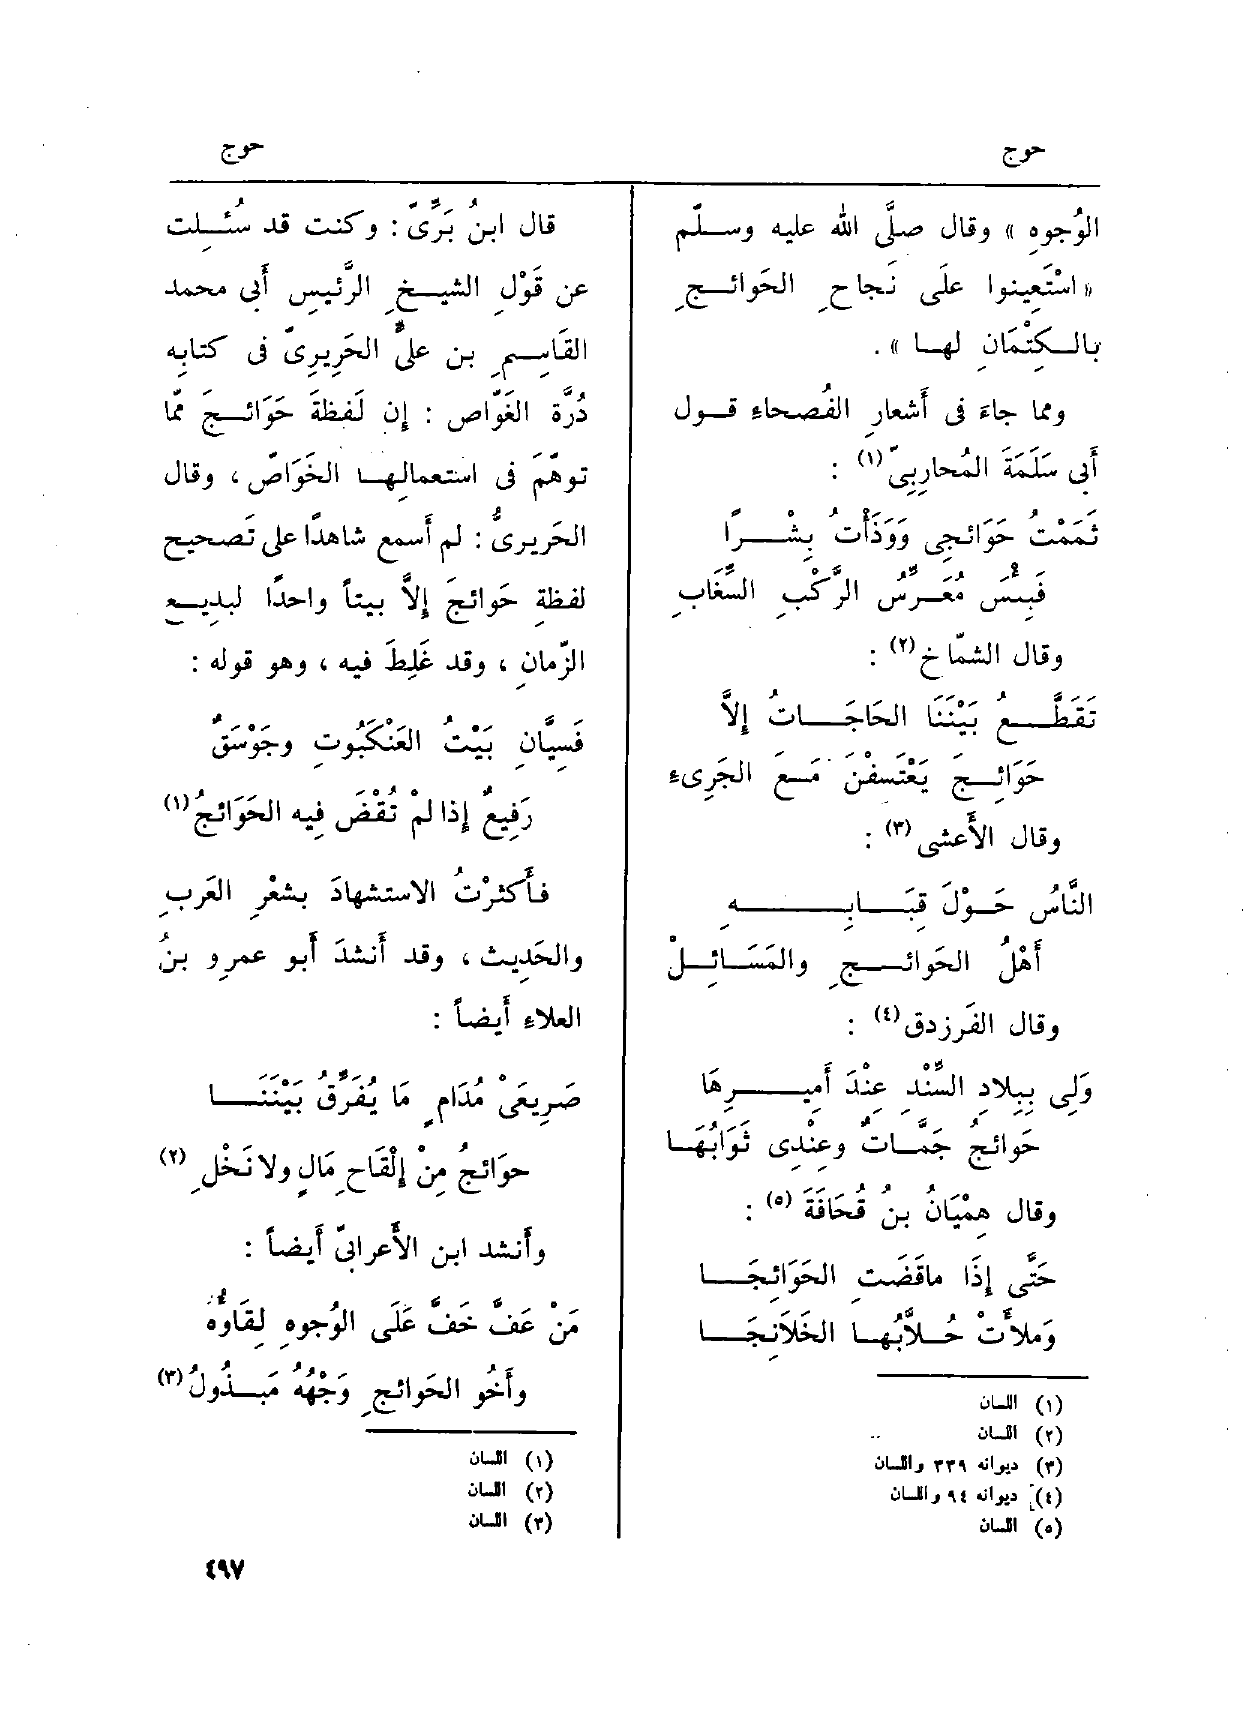 حوج
حوج
الوُجوهِ » وقال صلَّى الله عليه وسلَّم
« اسْتَعِينوا علَى نَجاحِ الحَوائجِ
بالكِتْمَانِ لها » .
ومما جاءَ فى أَشعارِ الفُصحاءِ قول
أَبى سَلَمَةَ المُحاربِىّ (١) :
ثَمَمْتُ حَوَائجِى وَوَذَأْتُ بِشْرًا
فَبِئْسَ مُعَرِّسُ الرَّكْبِ السِّغَابِ
وقال الشمّاخ (٢) :
تَقَطَّعُ بَيْنَنَا الحَاجَاتُ إِلاَّ
حَوَائِجَ يَعْتَسِفْنَ مَعَ الجَرِىءِ
وقال الأَعشى (٣) :
النَّاسُ حَوْلَ قِبَابِهِ
أَهْلُ الحَوائجِ والمَسَائِلْ
وقال الفَرزدق (٤) :
وَلِى بِبِلادِ السِّنْدِ عِنْدَ أَمِيرِهَا
حَوائجُ جَمَّاتٌ وعِنْدِى ثَوَابُهَا
وقال هِمْيَانُ بنُ قُحَافَةَ (٥) :
حَتَّى إِذَا ماقَضَتِ الحَوَائجَا
وَمَلأَتْ حُلاَّبُها الخَلاَنِجَا
(١) اللسان
(٢) اللسان
(٣) ديوانه ٣٣٩ واللسان
(٤) ديوانه ٩٤ واللسان
(٥) اللسان
قال ابنُ بَرِّىّ : وكنت قد سُئِلت
عن قَوْلِ الشيخِ الرَّئيسِ أَبى محمد
القَاسِمِ بن علىٍّ الحَرِيرىّ فى كتابِه
دُرَّة الغَوّاص : إِن لَفظةَ حَوَائجَ ممّا
توهَّم فى استعمالِها الخَوَاصّ ، وقال
الحَريرىُّ : لم أَسمع شاهدًا على تَصحيحِ
لفظةِ حَوائجَ إِلاَّ بيتاً واحدًا لبديعِ
الزّمانِ ، وقد غَلِطَ فيه ، وهو قوله :
فَسِيَّانِ بَيْتُ العَنْكَبُوتِ وجَوْسَقٌ
رَفِيعٌ إِذا لَمْ تُقْضَ فيه الحَوَائجُ (١)
فأَكثرْتُ الاستشهادَ بشعْرِ العَربِ
والحَديث ، وقد أَنشدَ أَبو عمرو بنُ
العلاءِ أَيضاً :
صَرِيعَىْ مُدَامٍ مَا يُفَرِّقُ بَيْنَنَا
حوَائجُ مِنْ إِلْقَاحِ مَالٍ ولا نَخْلِ (٢)
وأَنشد ابن الأَعرابىّ أَيضاً :
مَنْ عَفَّ خَفَّ عَلَى الوُجوهِ لِقَاؤُهُ
وأَخُو الحَوائجِ وَجْهُهُ مَبْذُولُ (٣)
(١) اللسان
(٢) اللسان
(٣) اللسان
٤٩٧